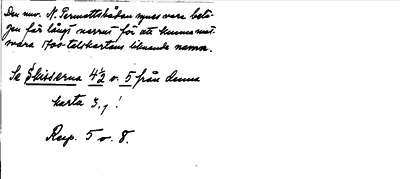 Den nuv. N. Permottshåkan synes vara belä-
gen för långt norrut för att kunna mot-
svara 1700-talskartans liknande namn.
Se Skisserna 42 o. 5 från denna
karta 3,!
Resp. 5 o. 8.